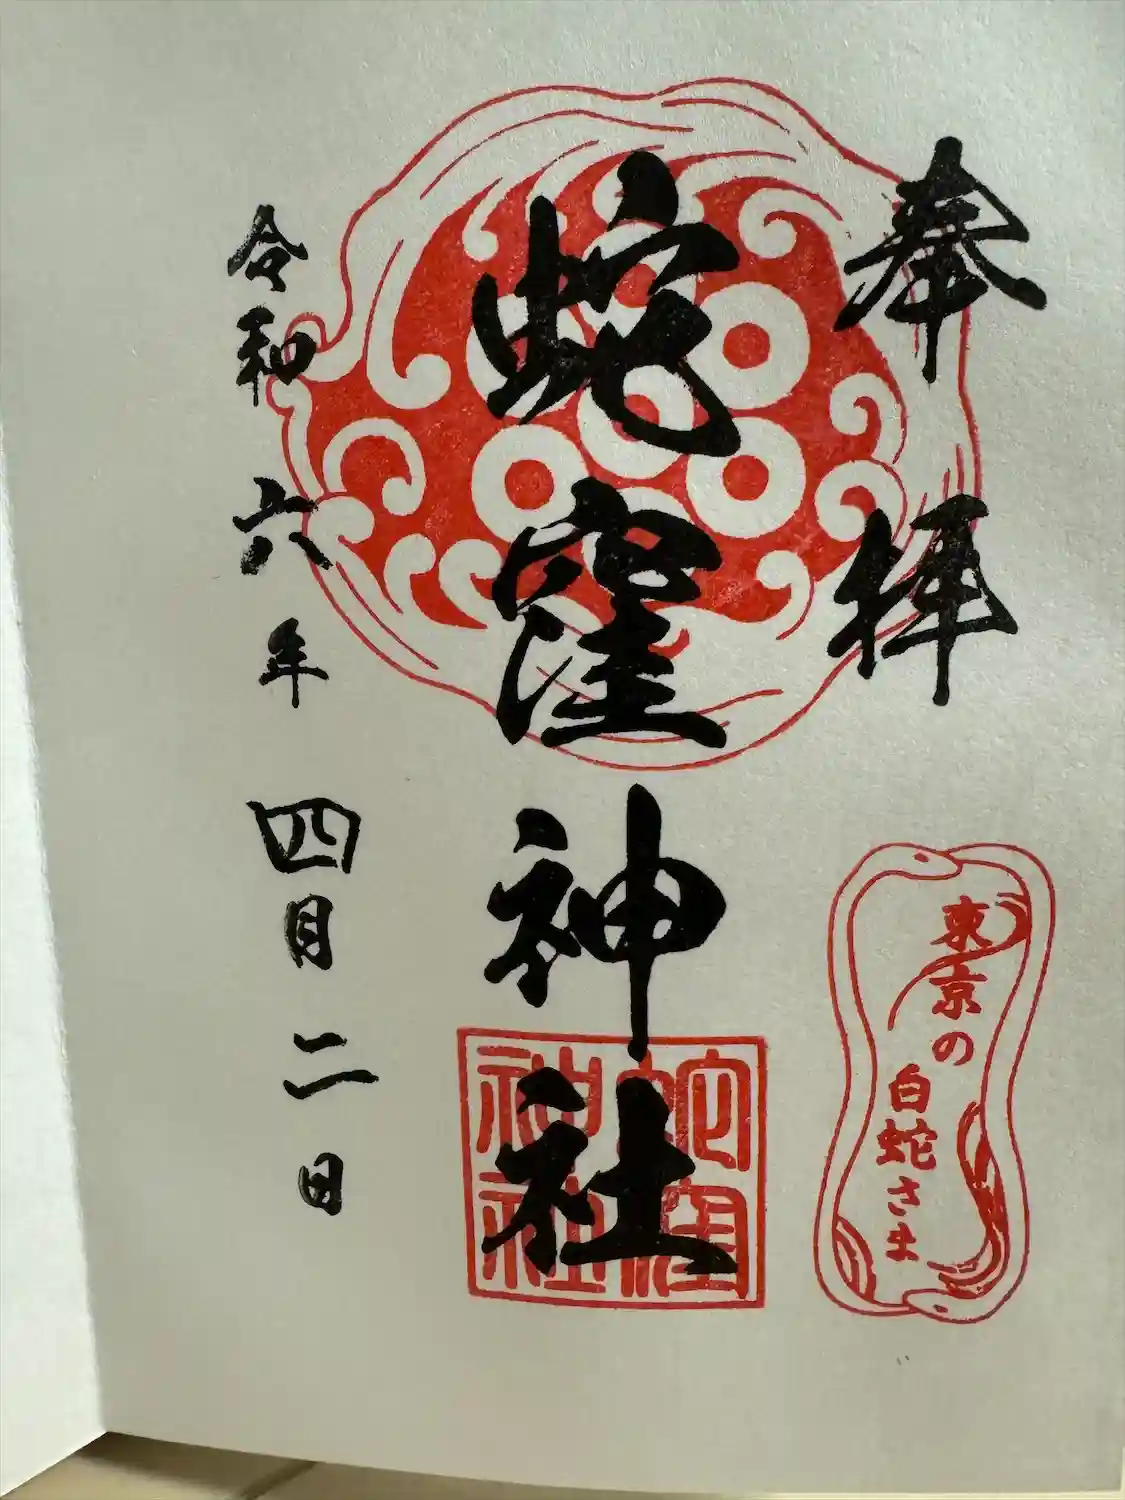 奉拝
東京の
白蛇さま
蛇窪神社
蛇窪
神社
令和六年四月二日